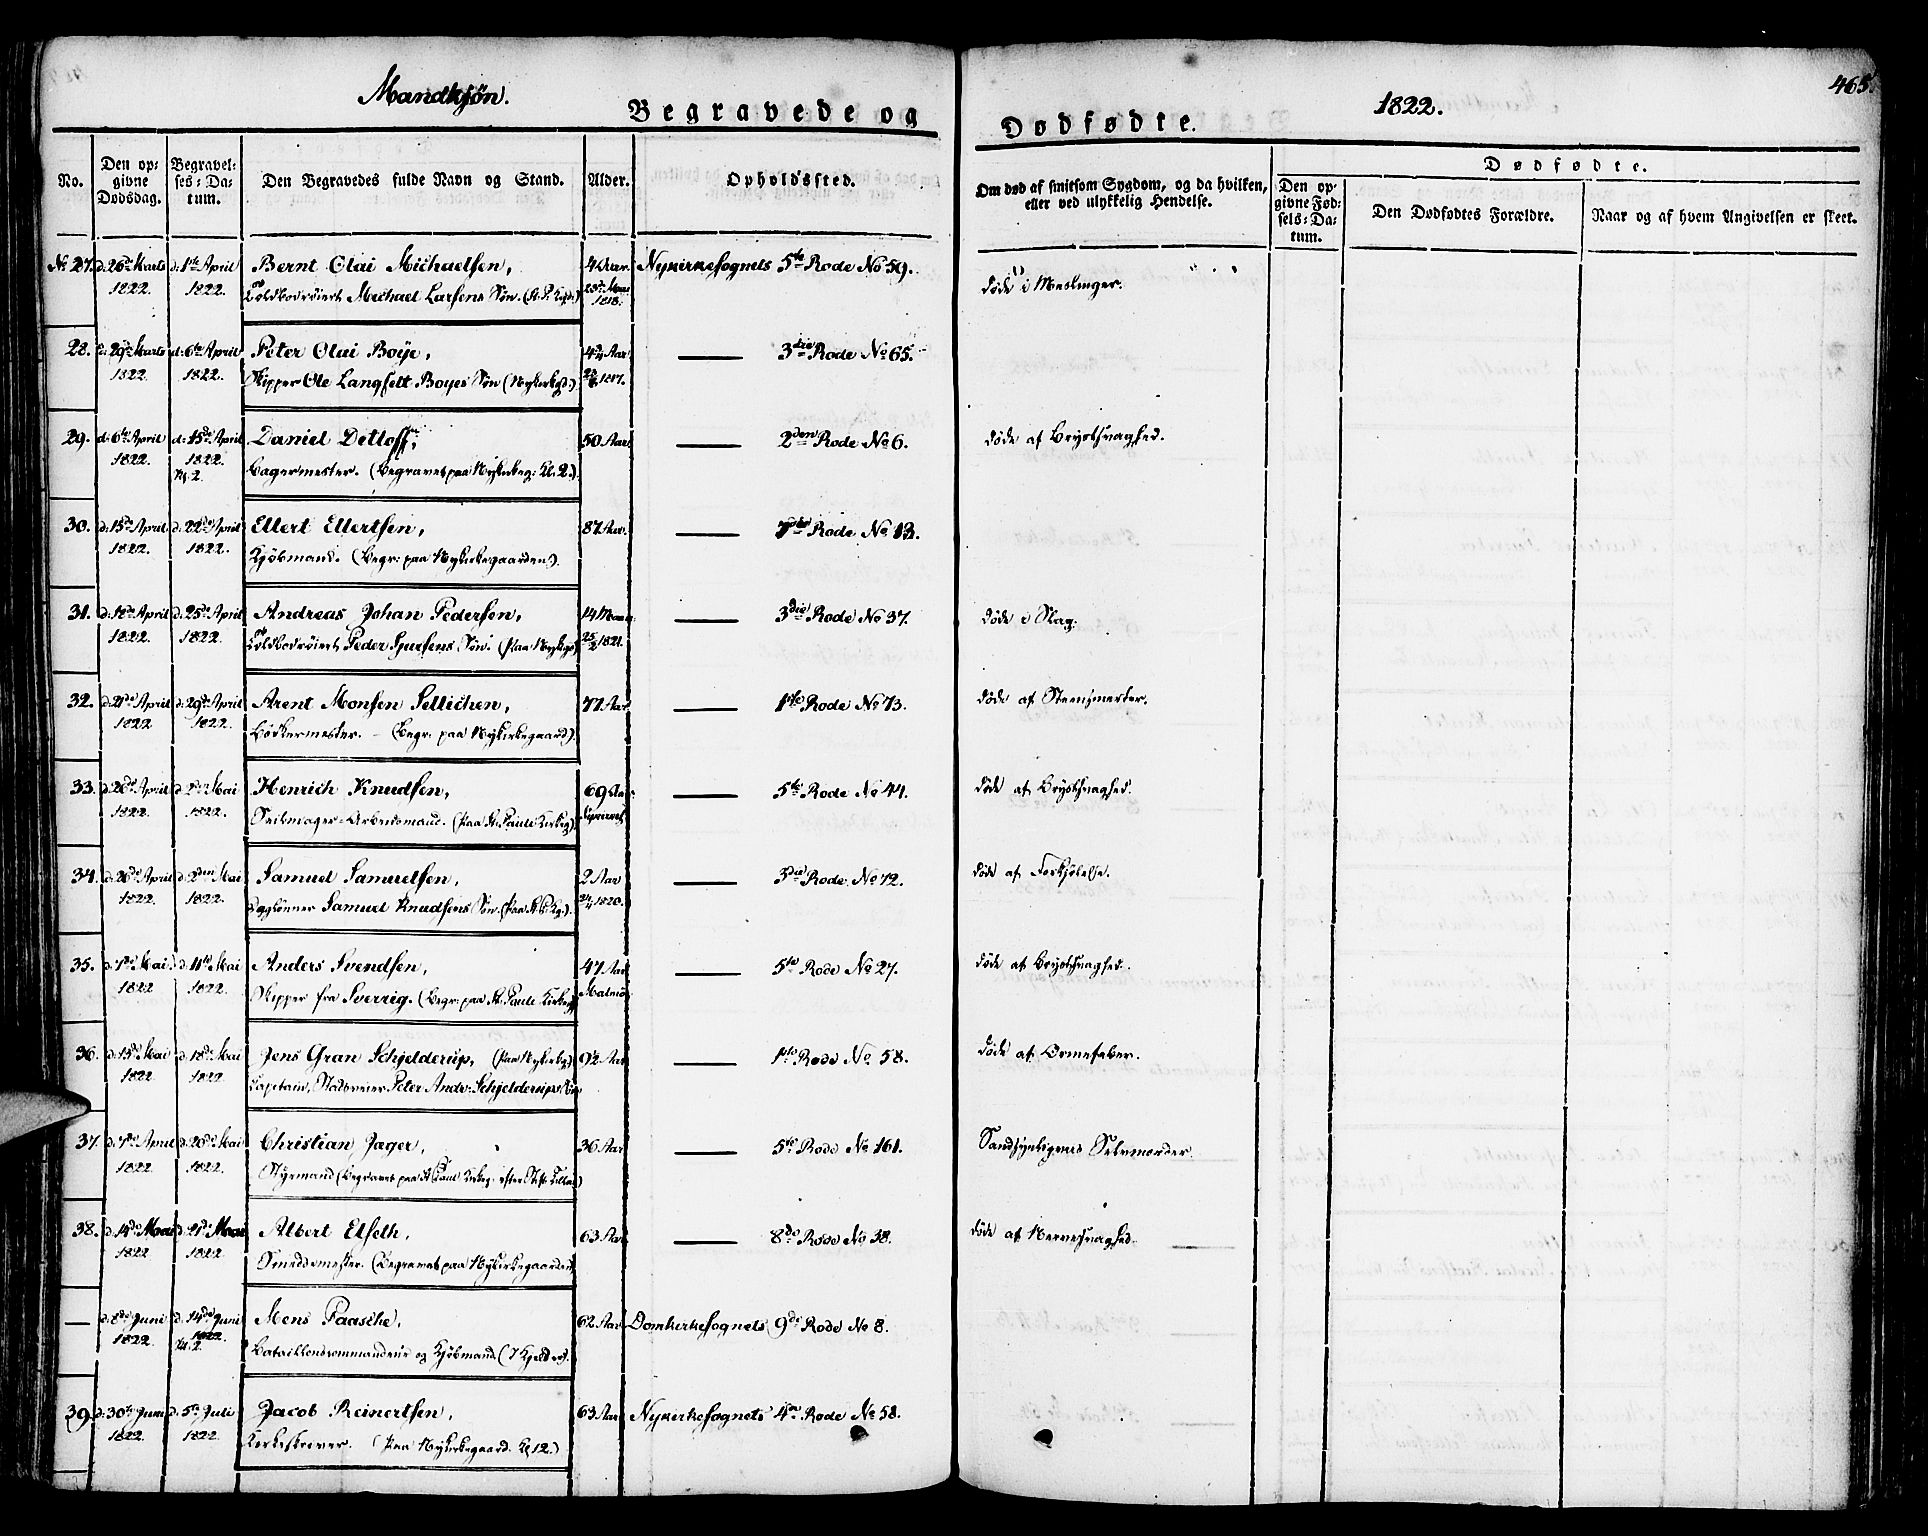 Mandkjøn.
Begravede og
Dødfødte.
1822.
465.
No.
Den op-
givne
Dødsdag.
Begravel-
ses-Da-
tum.
Den Begravedes fulde Navn og Stand.
Alder.
Opholdssted.
Om død af smitsom Sygdom, og da hvilken,
eller ved ulykkelig Hendelse.
Dødfødte.
Den op-
givne Fød-
sels-Da-
tum.
Den Dødfødtes Forældre.
Naar og af hvem Angivelsen er skeet.
No. 27. d: 26de Marts d: 1ste April Bernt Olai Michaelsen, 4 Aar Nykirkesognets 5te Rode No 59. døde i Meslinger.
1822. 1822. Michael Larsens Søn. 1818.
28. d: 29de Marts d: 6te April Peter Olai Boye, 4 3/4 Aar 3die Rode No 65.
1822. 1822. Skipper Ole Langsett Boyes Søn (Nykirkegd.) 1817.
29. d: 6te April d: 15de April Daniel Detloff, 50 Aar 2den Rode No 6. døde af Brystsvaghed.
1822. 1822. Kl. 2. Bagermester. (Begravet paa Nykirkeg: Kl. 2.)
30. d: 15de April d: 22de April Ellert Ellertsen, 87 Aar. Rode No 13.
1822. 1822. Kjøbmand. (Begr: paa Nykirkegaarden.)
31. d: 18de April d: 25de April Andreas Johan Pedersen, 14 Maan: 3die Rode No 37. døde i Slag.
1822. 1822. Peder Sjursens Søn. (Paa Nykirkegd) 25/2 1821.
32. d: 21de April d: 29de April Arent Monsen Sellichen, 77 Aar 1ste Rode No 73. døde af Steensmerter.
1822 1822. Bødkermester. - (Begr: paa Nykirkegaard).
33. d: 26de April d: 2den Mai Henrich Knudsen, 69 Aar 5te Rode No 44. døde af Brystsvaghed.
1822. 1822. Seilmager-Arbeidsmand. (Paa St. Pauls Kirkeg.)
34. d: 26de April d: 2den Mai Samuel Samuelsen, 2 Aar 3die Rode No 12. døde af Forkjølelse.
1822. 1822. Samuel Knudsens Søn. (Paa St. P. Kg.) 1820.
35. d: 7de Mai d: 11te Mai Anders Svendsen, 47 Aar 5te Rode No 27. døde af Brystsvaghed.
1822 1822. Skipper fra Sverrig. (Begr: paa St. Pauls Kirkeg) Malmø
36. d: 15de Mai d: 18de Mai Jens Gran Schjelderup, (paa Nykirkeg) 9 1/2 Aar 1ste Rode No 58. døde af Ormefeber.
1822 1822. Capitain, Peter Andr: Schjelderups Søn
37. d: 7de April d: 20de Mai Christian Jager, 36 Aar 5te Rode No 161. Sandsynligviis Selvmorder.
1822 1822. Styrmand (Begravet paa St. Pauls Kirkeg.
38. d: 14de Mai d: 21de Mai Albert Elseth, 63 Aar 8de Rode No 38. døde af Nervesvaghed.
1822 1822. Smeddemester. (Begravet paa Nykirkegaarden)
— d: 8de Juni d: 14de Juni Mens Paasche, 62 Aar Domkirkesognets 9de Rode No 8.
1822. 1822. Kl. 2. Bataillonscommandeur og Kjøbmand.
39. d: 30te Juni d: 5te Juli Jacob Reinertsen, 63 Aar Nykirkesognets 4de Rode No 58.
1822. 1822. Kirkeskriver. (Paa Nykirkegaard. Kl 12.)